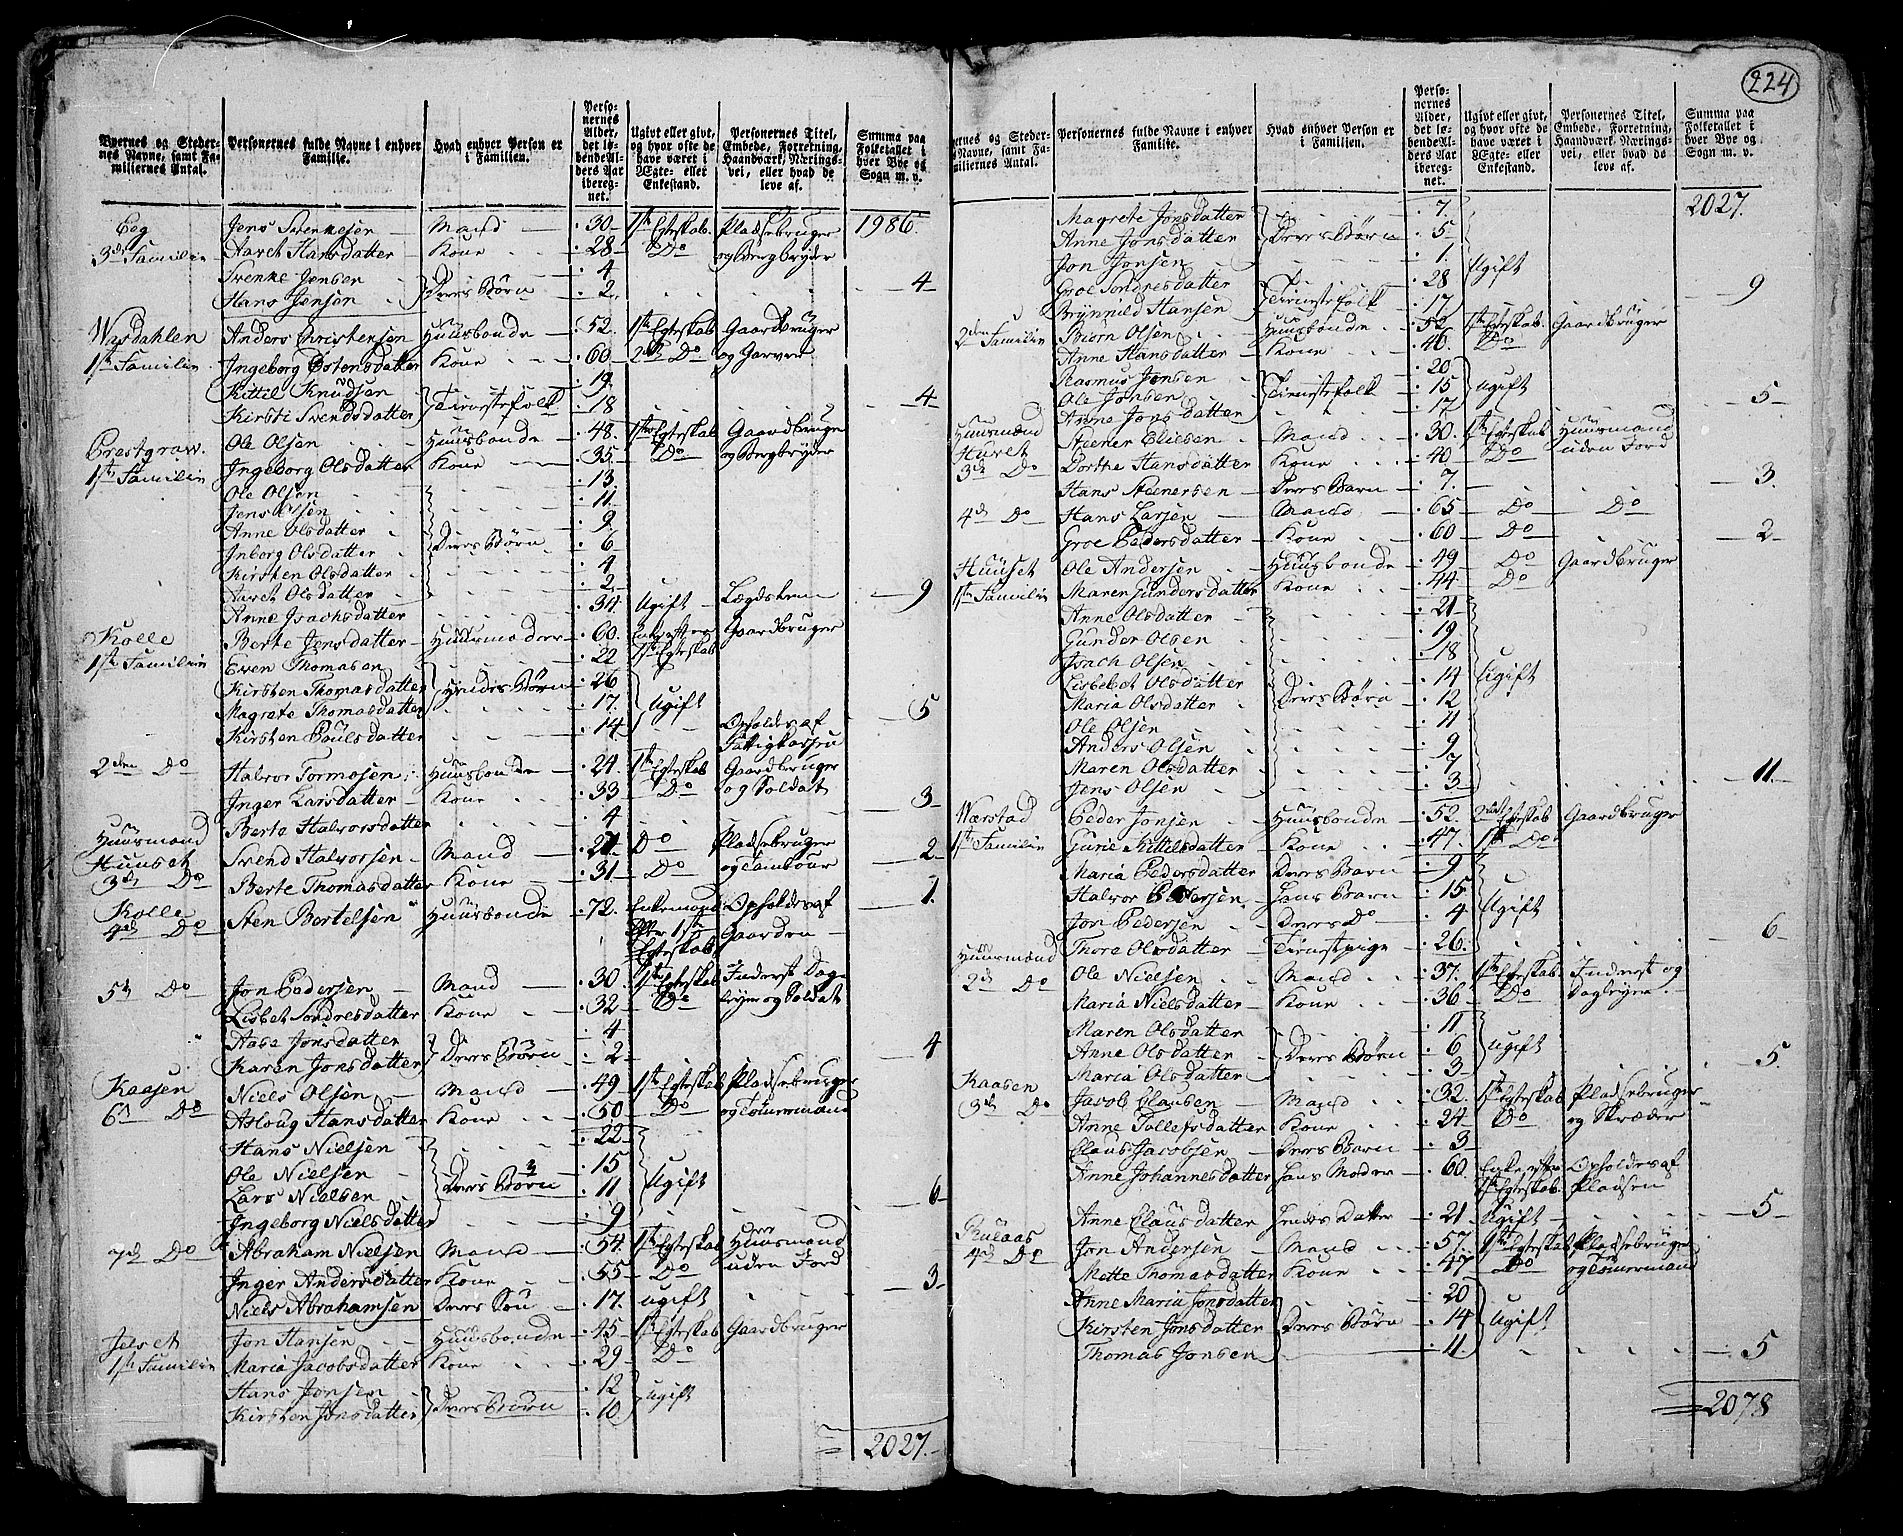 224
Byernes og Steder-
nes Navne, samt Fa-
miliernes Antal.
Personernes fulde Navne i enhver
Familie.
Hvad enhver Person er
i Familien.
Perso-
nernes
Alder,
det lø-
bende Al-
ders Aar
iberegnet.
Ugivt eller givt,
og hvor ofte de
have været i
Ægte- eller
Enkestand.
Personernes Titel,
Embede, Forretning,
Haandværk, Nærings-
vei, eller hvad de
leve af.
Summa paa
Folketallet i
hver Bye og
Sogn m. v.
Eeg Jens Svenkesen Mand 30 1ste Egteskab Pladsebruger 1986
3die Familie Aaret Hansdatter Kone 28 Do og Bergbryder
Svenke Jensen 4
Hans Jensen Deres Børn 2 4
Wasdahlen Anders Christensen Huusbonde 52 1ste Egteskab Gaardbruger
1ste Familie Ingeborg Østensdatter Kone 60 2det Do og Garver
Kittil Knudsen 19
Kirsti Svendsdatter Tienestefolk 18 4
Prestgraw. Ole Olsen Huusbonde 48 1ste Egteskab Gaardbruger
1ste Familie Ingeborg Olsdatter Kone 35 Do og Bergbryder
Ole Olsen 13
Jens Olsen 11
Anne Olsdatter 9
Inborg Olsdatter Deres Børn 6
Kirsten Olsdatter 4
Aaret Olsdatter 2
Anne Isachsdatter 34 Ugift Lægdslem 9
Kolle Berte Jensdatter Huusmoder 60 Enke efter Gaardbruger
1ste Familie Even Thomasen 22 1ste Egteskab
Kirsten Thomasdatter Hendes Børn 26
Magrete Thomasdatter 17 Ugift 5
Kirsten Poulsdatter 14 Opholdes af
Fattigkassen
2den Do Halvor Tormosen Huusbonde 24 1ste Egteskab Gaardbruger
Inger Larsdatter Kone 33 Do og Soldat 3
Berte Halvorsdatter 4
Huusmand
Huuset Svend Halvorsen Mand 21 Do Pladsebruger 2
3de Do Berte Thomasdatter Kone 31 Do og Tambour
Kolle
4de Do Sten Bertelsen Huusbonde 72 Enkemand Opholdes af 1
efter 1ste Gaarden
Egteskab
5te Do Jon Pedersen Mand 30 1ste Egteskab Inderst Dag-
Lisbet Sondresdatter Kone 32 Do leyer og Soldat
Aase Jonsdatter 4
Karen Jonsdatter Deres Børn 2 4
Kaasen Niels Olsen Mand 49 1ste Egteskab Pladsebruger
6te Do Asloug Hansdatter Kone 50 Do og Tømermand
Hans Nielsen 22
Ole Nielsen 15
Lars Nielsen Deres Børn 11 Ugift 6
Ingeborg Nielsdatter 9
7de Do Abraham Nielsen Mand 54 1ste Egteskab Huusmand
Inger Andersdatter Kone 55 Do uden Jord 3
Niels Abrahamsen Deres Søn 17 ugift
Jelset Jon Hansen Huusbonde 45 1ste Egteskab Gaardbruger
1ste Familie Maria Jacobsdatter Kone 29 Do
Hans Jonsen 12
Kirsten Jonsdatter Deres Børn 10 ugift
2027
ernes og Steder-
s Navne, samt Fa-
iliernes Antal.
Personernes fulde Navne i enhver
Familie.
Hvad enhver Person er
i Familien.
Perso-
nernes
Alder,
det lø-
bende Al-
ders Aar
iberegnet.
Ugivt eller givt,
og hvor ofte de
have været i
Ægte- eller
Enkestand.
Personernes Titel,
Embede, Forretning,
Haandværk, Nærings-
vei, eller hvad de
leve af.
Summa paa
Folketallet i
hver Bye og
Sogn m. v.
Magrete Jonsdatter 7 2027
Anne Jonsdatter Deres Børn 5
Jon Jonsen 1
Groe Sondresdatter 28 Ugift
Brynnild Hansen Tienestefolk 17 9
2den Familie Biørn Olsen Huusbonde 52 1ste Egteskab Gaardbruger
Anne Hansdatter Kone 46 Do
Rasmus Jensen 20
Ole Jonsen Tienestefolk 15 ugift
Anne Jonsdatter 17 5
Huusmænd
Huset Steener Eliesen Mand 30 1ste Egteskab Huusmand
3de Do Dorthe Hansdatter Kone 40 Do uden Jord
Hans Steenersen Deres Barn 7 3
4de Do Hans Larsen Mand 65 Do Do
Groe Pedersdatter Kone 60 Do 2
Huuset Ole Andersen Huusbonde 49 Do Gaardbruger
1ste Familie Maren Gundersdatter Kone 44 Do
Anne Olsdatter 21
Gunder Olsen 19
Isach Olsen 18
Lisbebet Olsdatter 14 Ugift
Maria Olsdatter Deres Børn 12
Ole Olsen 11
Anders Olsen 9
Maren Olsdatter 7
Jens Olsen 3 11
Wærstad Peder Jonsen Huusbonde 52 2det Egteskab Gaardbruger
1ste Familie Gurie Kittilsdatter Kone 47 1ste Do
Maria Pedersdatter Deres Barn 9
Halvor Pedersen Hans Barn 15
Jon Pedersen Deres Do 4 Ugift
Thore Olsdatter Tienestpige 26 6
Huusmænd
2de Do Ole Nielsen Mand 37 1ste Egteskab Inderst og
Maria Nielsdatter Kone 36 Do Dagleyer
Maren Olsdatter 11
Anne Olsdatter Deres Børn 6 ugift
Maria Olsdatter 3 5
Kaasen
3de Do Jacob Clausen Mand 32 1ste Egteskab Pladsebruger
Anne Tollefsdatter Kone 24 Do og Skræder
Claus Jacobsen Deres Barn 3
Anne Johannesdatter Hans Moder 60 Enke efter Opholdes af
1ste Egteskab Pladsen
Anne Clausdatter Hendes Datter 21 Ugift 5
Rulaas Jon Andersen Mand 57 1ste Egteskab Pladsebruger
4de Do Mette Thomasdatter Kone 47 Do og Tømermand
Anne Maria Jonsdatter 20
Kirsten Jonsdatter Deres Børn 14 Ugift
Thomas Jonsen 11 5
2078